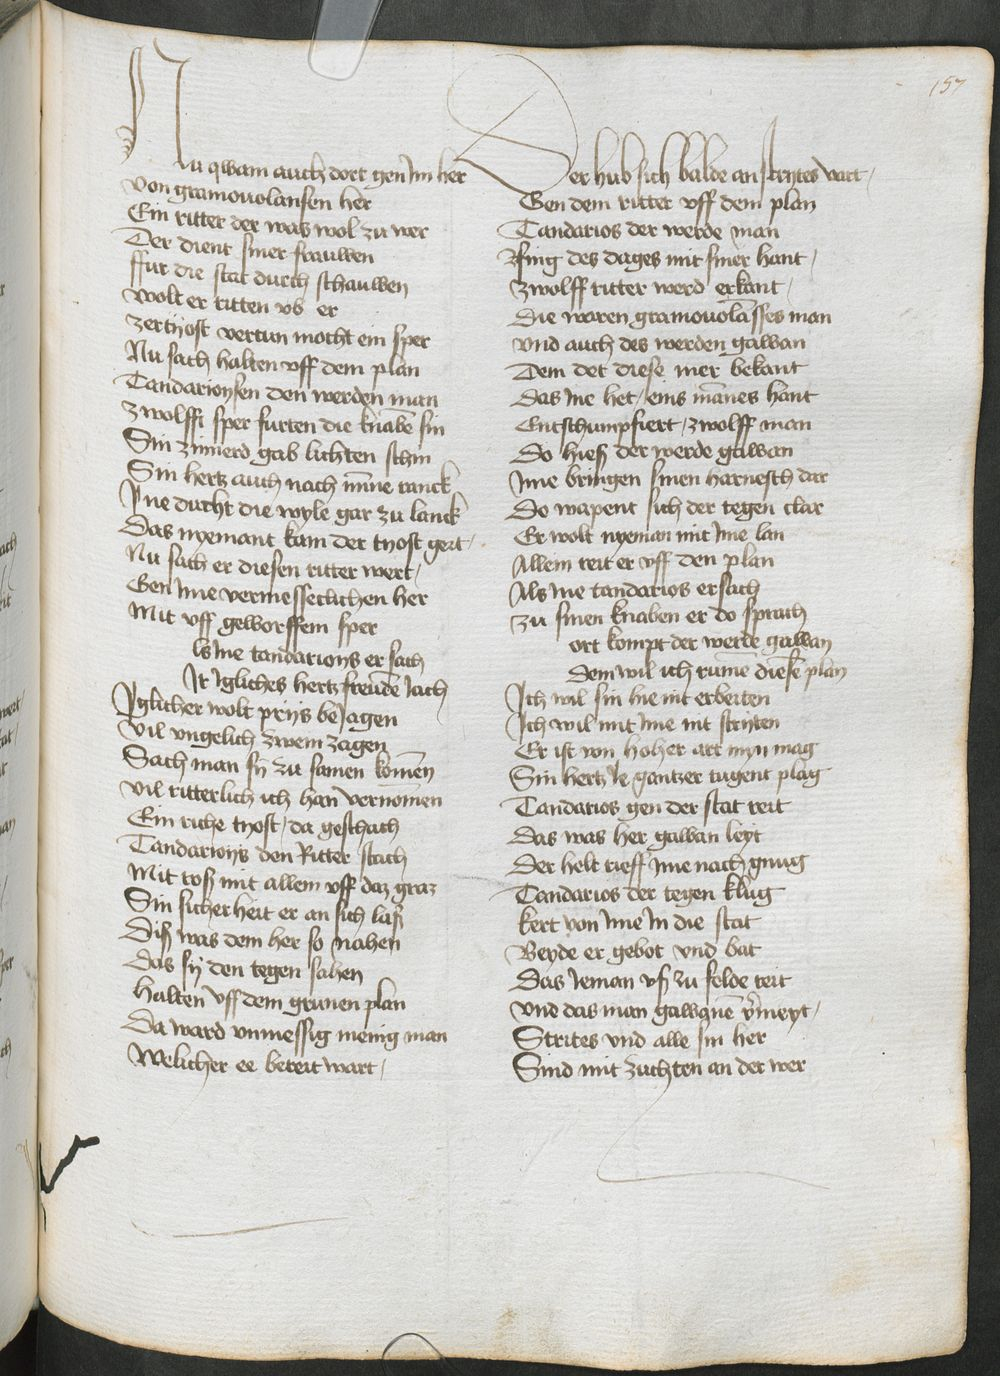 157
Nu qwam auch dort gen Im her
von gramouolansen her
Ein ritter der was wol zu wer
Der dient siner frauwen
ffur die stat durch schauwen
wolt er ritten ob er
zertyost vertun mocht ein sper
Nu sach halten vff dem plan
Tandarioysen den werden man
zwolffi sper furten die knabē sin
Sin zimierd gab lichten schin
Sin hertz auch nach mīne ranck
Ine ducht die wyle gar zu lanck
Das nyemant kam der tyost gert
Nu sach er diesen ritter wert
Gen Ime vermesseclichen her
Mit vff geworffem sper
ls Ine tandarions er sach
Ir Igliches hertz freudē Iach
Iglicher wolt prijs beIagen
Vil vngelich zwein zagen
Sach man sy zu samen komēn
Vil ritterlich ich han vernomēn
Ein riche tyost da geschach
Tandarioys den Ritter stach
Mit roß mit allem vff daz graz
Sin sicherheit er an sich laß
Diß was dem her so nahen
das sy den tegen sahen
halten vff dem grunen plan
Da ward vnmessig menig man
Welicher ee bereit wart
Der hub sich balde an strytes vart
Gen dem ritter vff dem plan
Tandarios der werde man
Vfing des dages mit siner hant
zwolff ritter werd erkant
Die waren gramouolasses man
vnd auch des werden gawan
Dem det diese mer bekant
Das Ine het eins mānes hant
Entschumpfiert zwolff man
Do hieß der werde gawan
Ime bringen sinen harnesch dar
Do wapent sich der tegen clar
Er wolt nyeman mit Ime lan
Allein reit er vff den plan
Als Ine tandarios ersach
zu sinen knaben er do sprach
ort kompt der werde gawan
dem wil ich rumē diesē plan
Ich wil sin hie nit erbeiten
Ich wil mit Ime nit stryten
Er ist von hoher art myn mag
Sin hertz Ie gantzer tugent plag
Tandarios gen der stat reit
Das was her gawan leyt
Der helt rieff Ime nach gnug
Tandarios der tegen klug
kert von Ime In die stat
Beyde er gebot vnd bat
Das Ieman vß zu felde reit
vnd das man gawanē v̄meyt
Strites vnd alle sin her
Sind mit zuchten an der wer